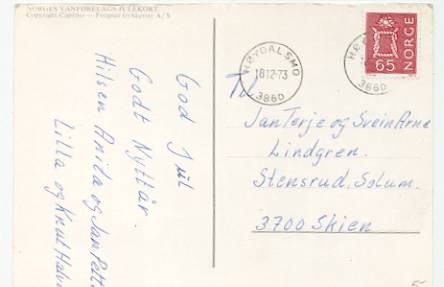 NORGES VANFØRELAGS JULEKORT
Copyright Cappelen — Fargout trykkerier A/S
God Jul
Godt Nyttår.
Hilsen Anita og Jan Petter
Lilla og Knut
HØYDALSMO
18 12-73
3860
NORGE
65
HØ
3860
Til
Jan Terje og Svein Arne
Lindgren.
Stensrud, Solum.
3700 Skien
5-